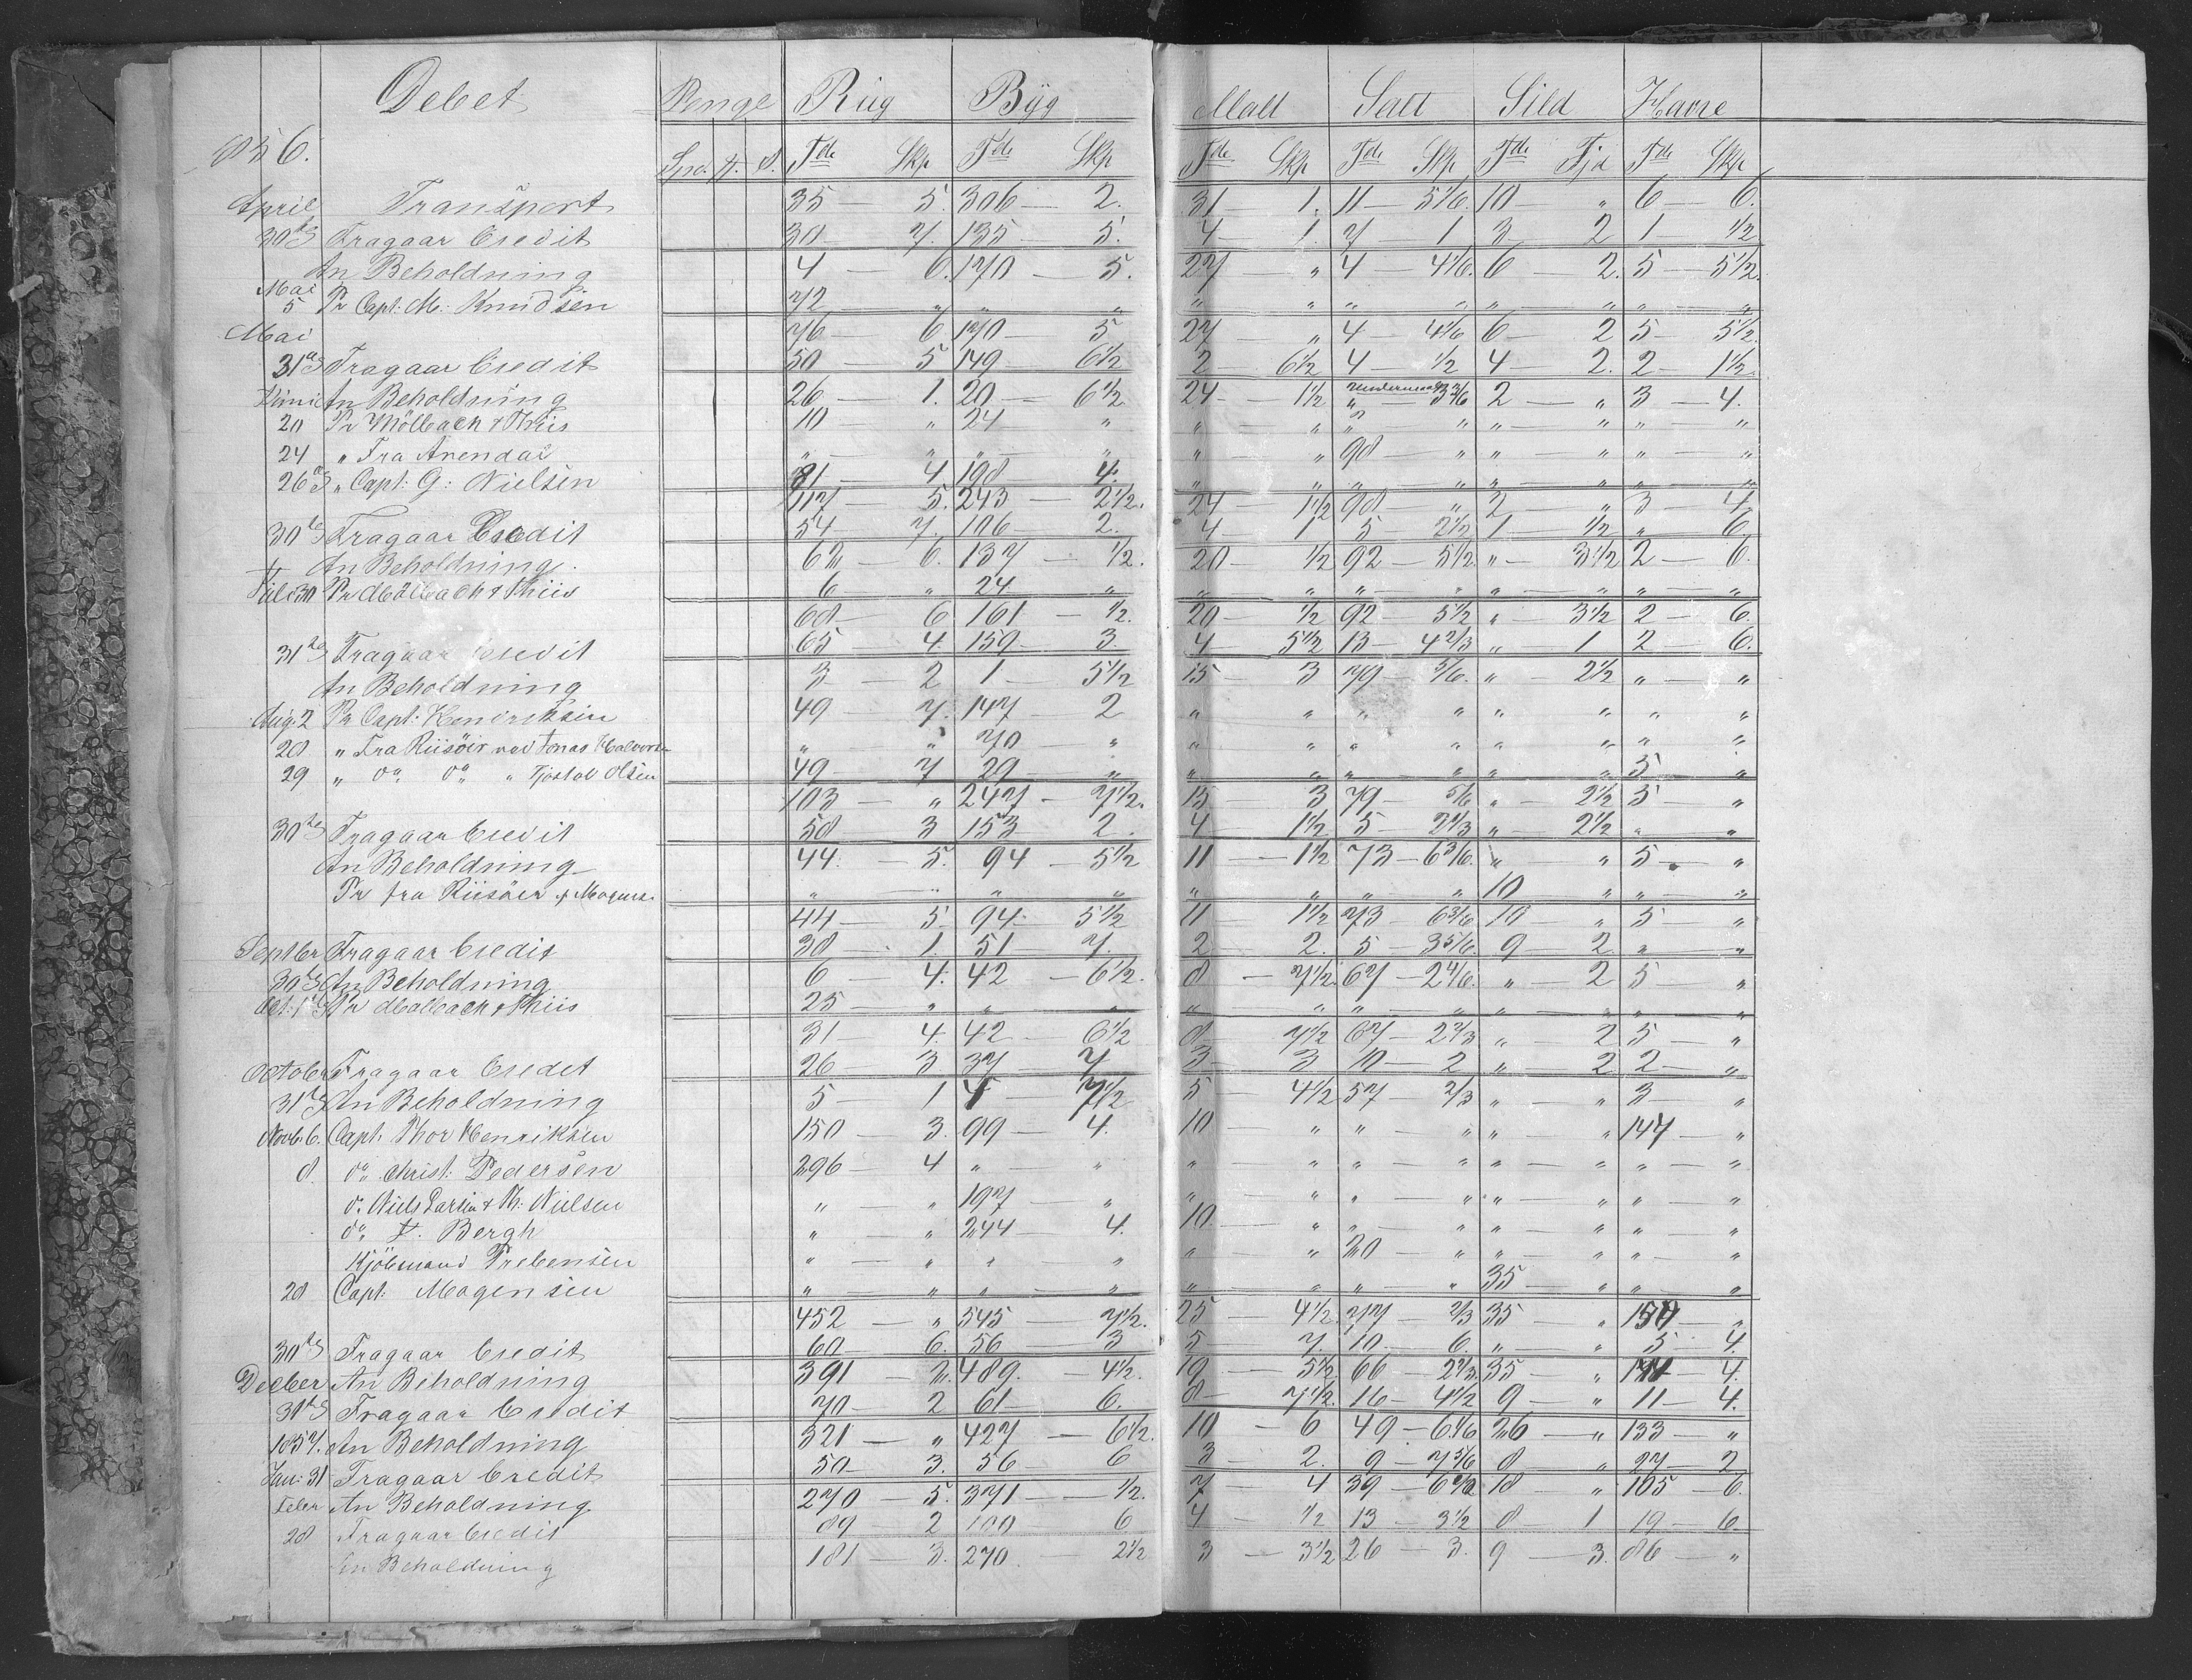 Debet Penge Rug Byg Malt Salt Sild Havre
1856. Spd. # ß. Tdr Skp Tdr Skp Tdr Skp Tdr Skp Tdr Fjd Tdr Skp
April Transport 35 — 5. 306 — 2. 31 — 1. 11 — 5 1/6. 10 — „ 6 — 6.
30te Fragaar Credit 30 — 7. 135 — 5. 4 — 1. 7 — 1 3 — 2 1 — 1/2
An Beholdning 4 — 6. 170 — 5. 27 — „ 4 — 4 1/6. 6 — 2. 5 — 5 1/2.
Mai
5 Pr Capt: M. Knudsen 72 — „ „ — „ „ — „ „ — „ „ — „ „ — „
Mai 76 — 6 170 — 5 27 — „ 4 — 4 1/6 6 — 2 5 — 5 1/2
31te Fragaar Credit 50 — 5 149 — 6 1/2 2 — 6 1/2 4 — 1/2 4 — 2. 2 — 1 1/2.
Juni An Beholdning 26 — 1. 20 — 6 1/2 24 — 1 1/2 „ — 3 3/6 2 — „ 3 — 4.
20 Pr Mölbach & Thiis 10 — „ 24 — „ „ — „ „ — „ „ — „ „ — „
24 „ Fra Arendal „ — „ „ — „ „ — „ 98 — „ „ — „ „ — „
26de „ Capt: G: Nielsen 81 — 4 198 — 4. „ — „ „ — „ „ — „ „ — „
117 — 5. 243 — 2 1/2. 24 — 1 1/2 98 — „ 2 — „ 3 — 4
30te Fragaar Credit 54 — 7. 106 — 2. 4 — 1 5 — 2 1/2 1 — 1/2 „ — 6
An Beholdning. 62 — 6. 137 — 1/2. 20 — 1/2 92 — 5 1/2 „ — 3 1/2 2 — 6.
Juli 30 Pr Mölbach & Thiis 6 — „ 24 — „ „ — „ „ — „ „ — „ „ — „
68 — 6 161 — 1/2. 20 — 1/2 92 — 5 1/2 „ — 3 1/2 2 — 6.
31te Fragaar Credit 65 — 4. 159 — 3. 4 — 5 1/2 13 — 4 2/3 „ — 1 2 — 6.
An Beholdning 3 — 2 1 — 5 1/2 15 — 3 79 — 5/6. „ — 2 1/2 „ — „
Aug. 2 Pr Capt: Hendriksen 49 — 7. 147 — 2 „ — „ „ — „ „ — „ „ — „
28 „ Fra Riisöir ved Jonas Halvors. „ — „ 70 — „ „ — „ „ — „ „ — „ „ — „
29 „ do do „ Tjostol Olsen 49 — 7 29 — „ „ — „ „ — „ „ — „ 5 — „
103 — „ 247 — 7 1/2. 15 — 3 79 — 5/6 „ — 2 1/2 5 — „
30te Fragaar Credit 58 — 3 153 — 2. 4 — 1 1/2 5 — 2 1/3 „ — 2 1/2 „ — „
An Beholdning 44. — 5. 94 — 5 1/2 11 — 1 1/2 73 — 6 3/6. „ — „ 5 — „
Pr fra Riisöer „ — „ „ — „ „ — „ „ — „ 10 — „ „ — „
44 — 5. 94 — 5 1/2 11 — 1 1/2 73 — 6 3/6 10 — „ 5 — „
Septbr Fragaar Credit 38 — 1. 51 — 7. 2 — 2. 5 — 3 5/6. 9 — 2. „ — „
30te An Beholdning 6 — 4. 42 — 6 1/2. 8 — 7 1/2. 67 — 2 4/6. „ — 2 5 — „
Oct: 1te Pr Mölbach & Thiis 25 — „ „ — „ „ — „ „ — „ „ — „ „ — „
31 — 4. 42 — 6 1/2 8 — 7 1/2 67 — 2 2/3 „ — 2 5 — „
October Fragaar Credet 26 — 3 37 — 7 3 — 3 10 — 2 „ — 2 2 — „
31te An Beholdning 5 — 1 4 — 7 1/2 5 — 4 1/2 57 — 2/3 „ — „ 3 — „
Novb. 6. Capt. Thor Henriksen 150 — 3. 99 — 4. 10 — „ „ — „ „ — „ 147 — „
8. do Christ: Pedersen 296 — 4 „ — „ „ — „ „ — „ „ — „ „ — „
do Niels Larsen & Th: Nielsen „ — „ 197 — „ „ — „ „ — „ „ — „ „ — „
do F. Bergh „ — „ 244 — 4. 10. — „ „ — „ „ — „ „ — „
Kjöbmand Prebensen „ — „ „ — „ „ — „ 20 — „ „ — „ „ — „
28 Capt: Mogensen „ — „ „ — „ „ — „ „ — „ 35 — „ „ — „
452 — „ 545 — 7 1/2. 25 — 4 1/2. 77 — 2/3 35 — „ 150 — „
30te Fragaar Credit 60 — 6. 56 — 3 5 — 7. 10 — 6. „ — „ 5 — 4.
Decber An Beholdning 391 — 2. 489. — 4 1/2. 19 — 5 1/2. 66 — 2 2/3. 35 — „ 144 — 4.
31te Fragaar Credit 70 — 2 61 — 6. 8 — 7 1/2. 16 — 4 1/2 9 — „ 11 — 4.
1857. An Beholdning 321 — „ 427 — 6 1/2. 10 — 6 49 — 6 1/6 26 — „ 133 — „
Jan: 31 Fragaar Credit 50 — 3. 56 — 6 3 — 2. 9 — 7 5/6 8 — „ 27 — 2
Feber An Beholdning 270 — 5. 371 — 1/2. 7 — 4 39 — 18 — „ 105 — 6.
28 Fragaar Credit 89 — 2 100 — 6 4 — 1/2 13 — 3 1/2 8 — 1 19 — 6.
An Beholdning 181 — 3. 270. — 2 1/2 3 — 3 1/2 26 — 3. 9 — 3. 86 — „